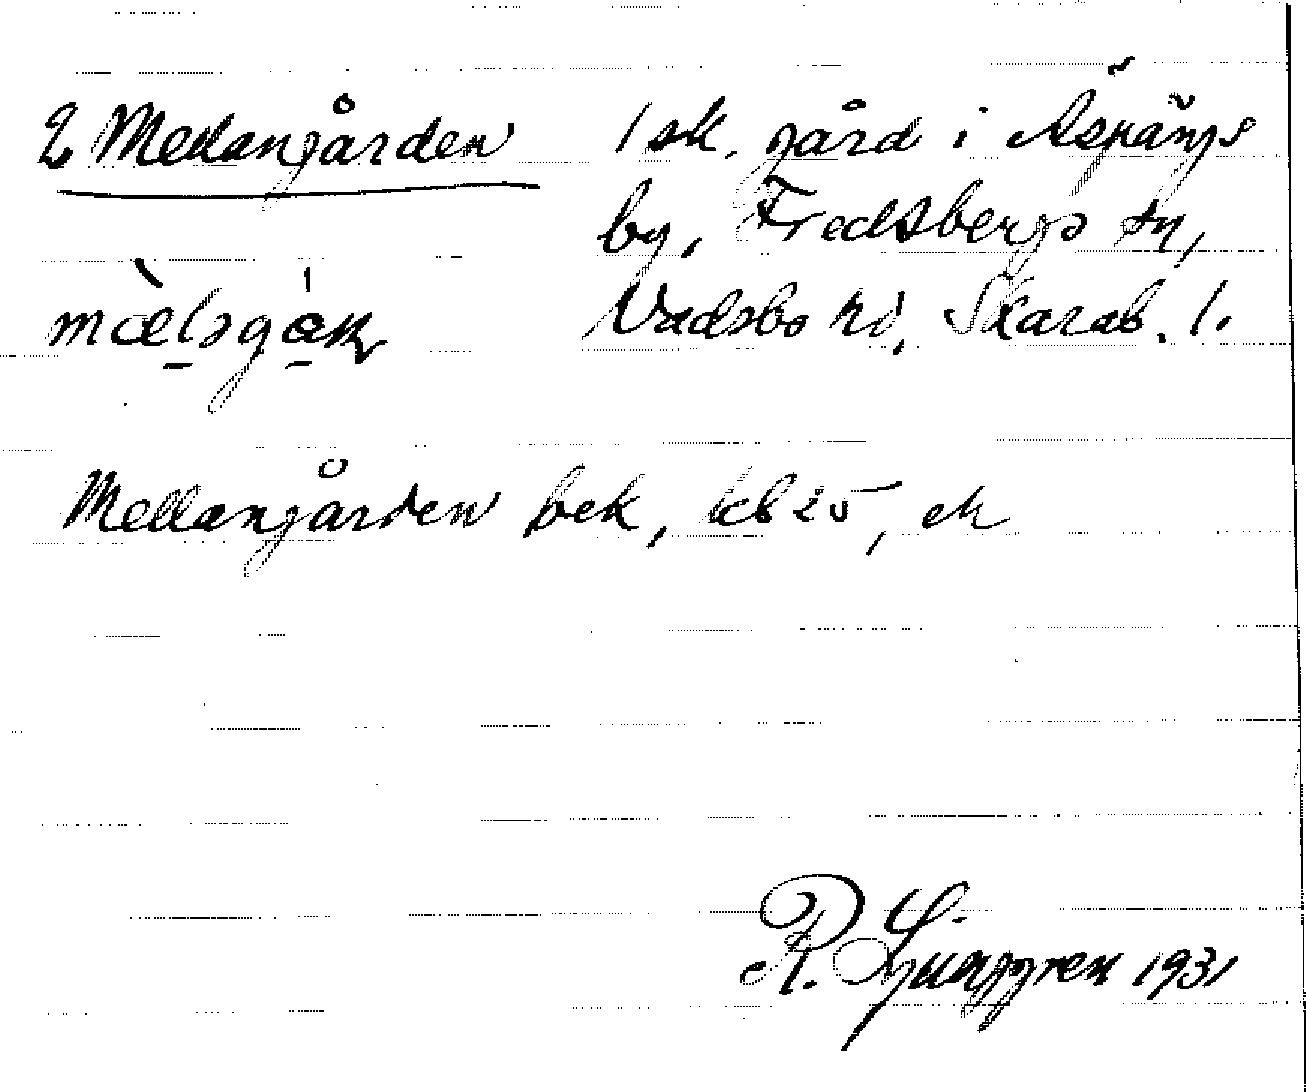 2 Mellangården
1 sk. gård i Äspängs
by, Fredsbergs sn,
Vadsbo hd, Skarab. l.
Mellangården bek, kb 25, ek
R. Ljunggren 1931